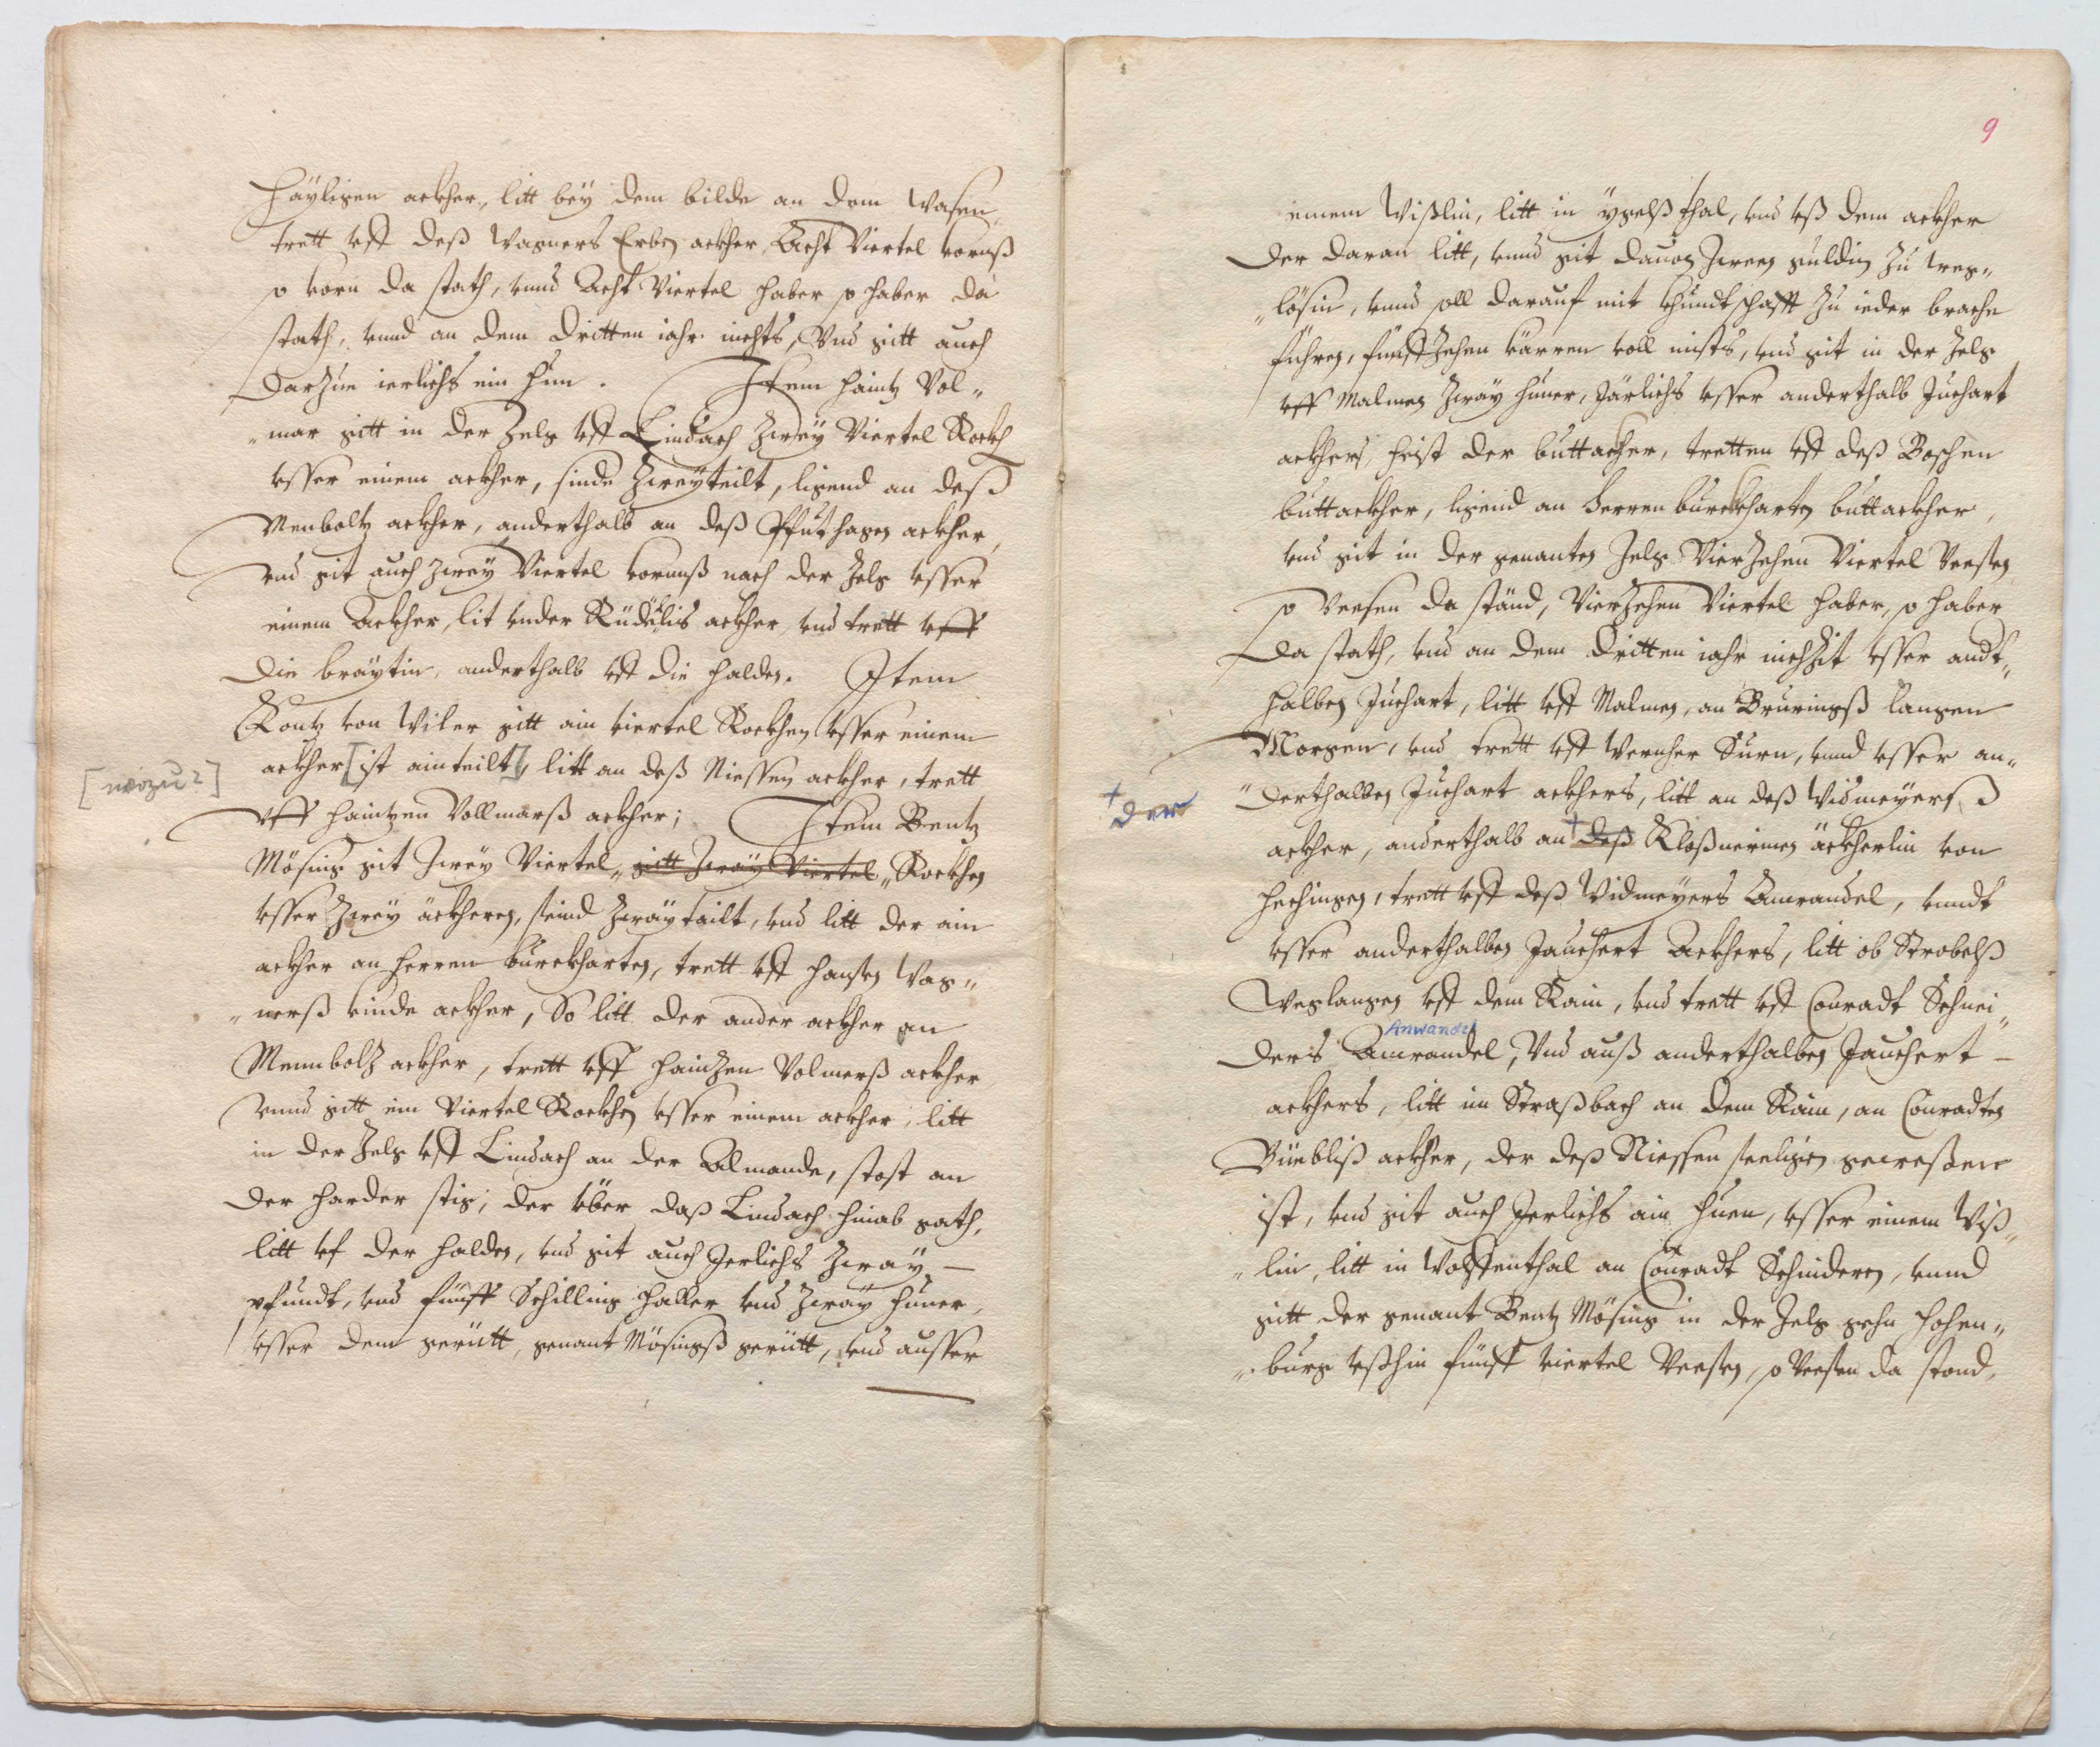 Häyligen ackher, litt bey dem bilde an dem Wasen,
trett vff deß Wagners Erben ackher, Acht Viertel kornß
so korn da stath, vnnd Acht Viertel haber so haber da
stath, vnnd an dem dritten iahr nichts, Vnd gitt auch
darzue ierlichs ein hun. Item Haintz Vol„
„mar gitt in der Zelg vff Lindach Zwey Viertel Rockh
vsser einem ackher, sinde Zweyteilt, ligend an deß
Menboltz ackher, anderthalb an deß Pfuthagen ackher,
vnd git auch Zwey Viertel kornnß nach der Zelg vsser
einem Ackher, lit vnder Rüdelis ackher vnd trett vff
die bräytin, anderthalb vff die halden. Item
Contz von Wiler gitt ain viertel Rockhen vsser einem
ackher [ist ainteilt], litt an deß Niessen ackher, trett
[wozu?]
vff Haintzen Vollmarß ackher; Item Bentz
Mösing git Zwey Viertel „gitt Zwäy Viertel„ Rockhen
vsser Zwey äckheren, seind Zwäyteilt, vnd litt der ain
ackher an Herren burckharten, trett vff Hansen Wag„
„nerß kinde ackher, So litt der ander ackher an
Mennboltz ackher, trett vff Haintzen Volmerß ackher
vnnd gitt ein Viertel Rockhen vsser einem ackher, litt
in der Zelg vff Lindach an der Almande, stost an
der harder stig; der über daß Lindach hinab gath,
litt vf der halden, vnd git auch Jerlichs Zwäy
pfundt, vnd fünff Schilling haller vnd Zwäy huner,
vsser dem gerütt, genant Mösingß gerütt, vnd ausser
9
einem Wißlin, litt in ygelß thal, vnd vß dem ackher
der daran litt, vnnd git dauon Zwen guldin Zu weg„
„lösin, vnnd soll darauf mit khundtschafft Zu ieder brache
führen, fünffzehen kärren voll mists, vnd git in der Zelg
vff Malmen Zwäy huner, Järlichs vsser anderthalb Juchart
ackhers, heist der buttackher, tretten vff deß Boschen
buttackher, ligend an Herren burckharten buttackher,
vnd git in der genanten Zelg Vierzehen Viertel Veesen
so Veesen da ständ, Vierzehen Viertel haber, so haber
da stath, vnd an dem dritten iahr nichzit vsser andt„
halben Juchart, litt vff Malmen, an Bruningß langen
Morgen, vnd trett vff Wernher Surn, vnnd vsser an„
„derthalben Juchart ackhers, litt an deß Widmeyerß
+ der
ackher, anderthalb an + deß Kloßnerinen äckherlin von
Hechingen, trett vff deß Widmeyers Anwandel, vnndt
vsser anderthalben Jauchert Ackhers, litt ob Strobelß
Weglangen vff dem Rain, vnd trett vff Conradt Schnei„
Anwandel
ders Amwandel, Vnd auß anderthalben Jauchert
ackherts, litt im Straßbach an dem Rain, an Conradten
ackher, der deß Niessen seeligen gewessen
ist, vnd git auch Jerlichs ain huen, vsser einem Wiß„
„lin, litt in Wolffenthal an Conradt Schinderen, vnnd
gitt der genant Bentz Mösing in der Zelg gehn Hohen„
„burg vßhin fünff viertel Veesen, so Veesen da stond,